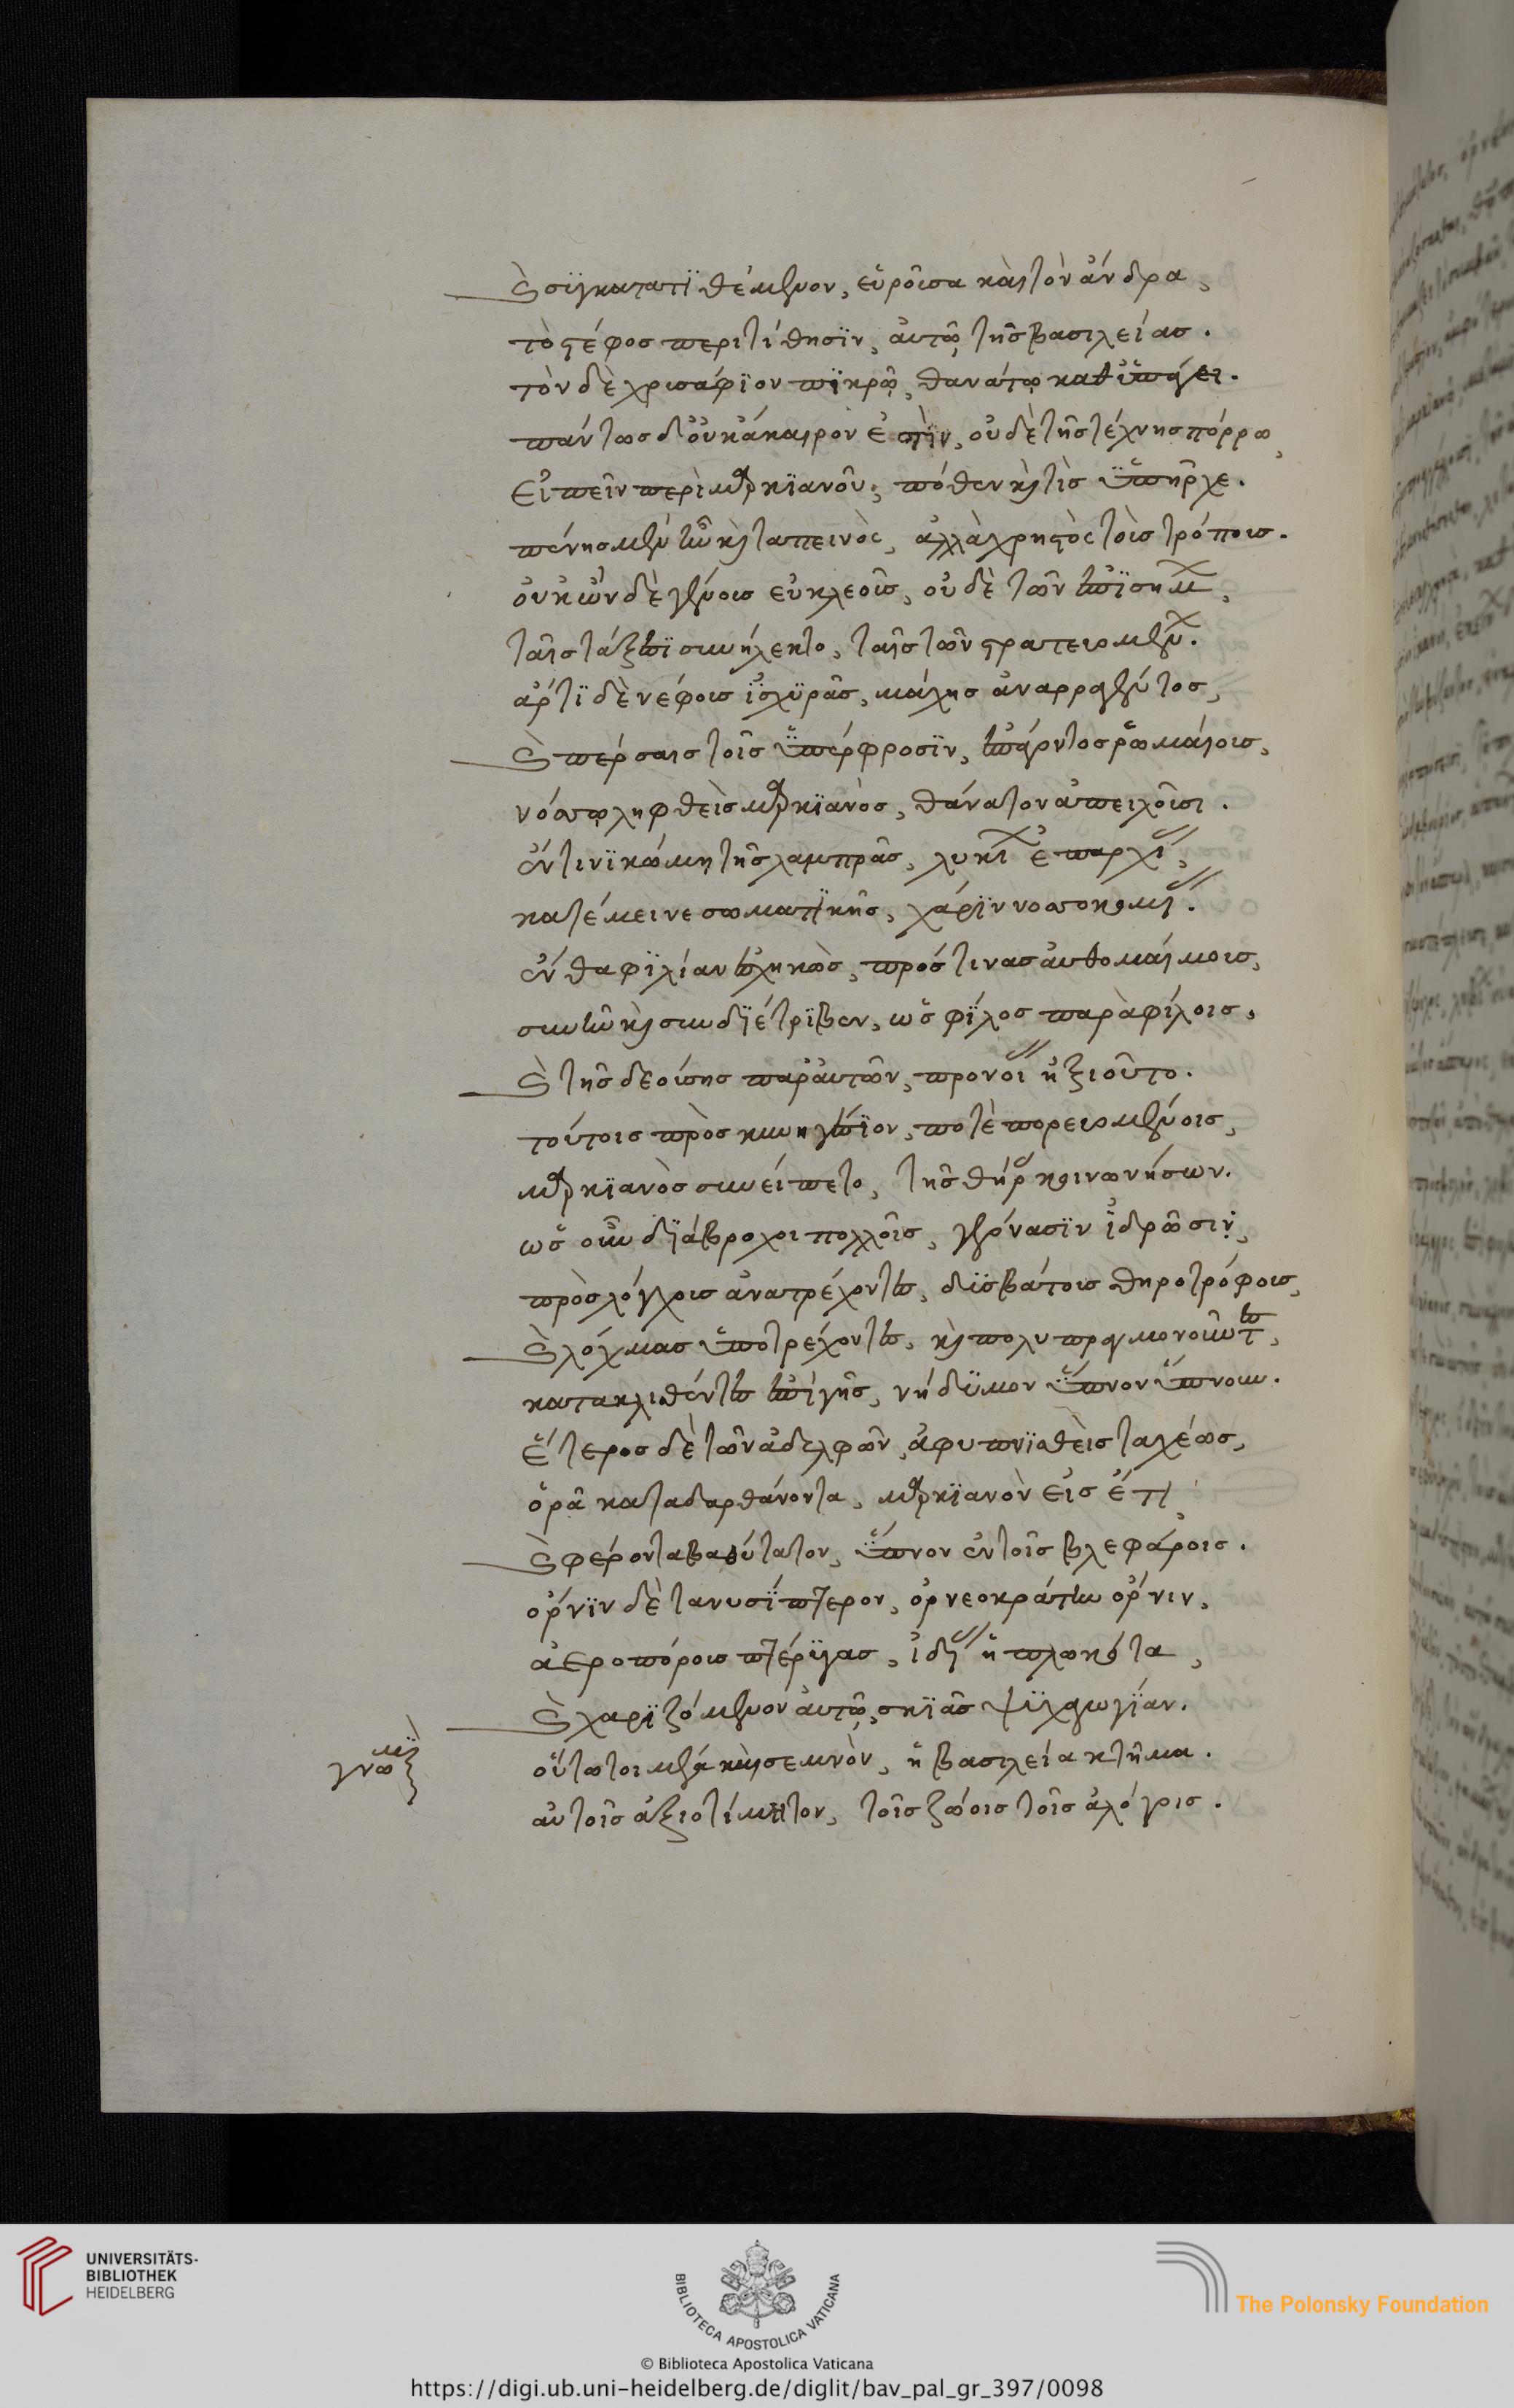 καὶ συγκατατιθέμενον, εὑροῦσα καὶ τὸν ἄνδρα,
τὸ στέφος περιτίθησιν, αὐτῷ τῆς βασιλείας.
τὸν δὲ χρυσάφιον πικρῷ, θανάτῳ καθυπάγει.
πάντως δ' οὐκ ἄκαιρόν ἐστιν, οὐδὲ τῆς τέχνης πόρρω,
εἰπεῖν περὶ μαρκιανοῦ, πόθεν καὶ τίς ὑπῆρχε.
πένης μὲν ἦν καὶ ταπεινὸς, ἀλλὰ χρηστὸς τοὺς τρόπους.
οὐκ ὢν δὲ γένους εὐκλεοῦς, οὐδὲ τῶν ἐπισήμων,
ταῖς τάξεσι συνήλεκτο, ταῖς τῶν στρατευομένων.
ἄρτι δὲ νέφους ἰσχυρᾶς, μάχης ἀναρραγέντος,
καὶ πέρσαις τοῖς ὑπέρφροσιν, ἐπάγοντος ῥωμαίους,
νόσῳ ληφθεὶς μαρκιανὸς, θάνατον ἀπειλούσῃ.
ἔν τινι κώμῃ τῆς λαμπρᾶς, λυκίων ἐπαρχίας,
κατέμεινε σωματικῆς, χάριν νοσοκομίας.
ἔνθα φιλίαν ἐσχηκὼς, πρός τινας αὐθομαίμους,
συνῆν καὶ συνδιέτριβεν, ὡς φίλος παρὰ φίλοις,
καὶ τῆς δεούσης παρ' αὐτῶν, προνοίας ἠξιοῦτο.
τούτοις πρὸς κυνηγέσιον, ποτὲ πορευομένοις,
μαρκιανὸς συνείπετο, τῆς θήρας κοινωνήσων.
ὡς οὖν διάβροχοι πολλοῖς, γεγόνασιν ἱδρῶσιν,
πρὸς λόχμους ἀνατρέχοντες, δυσβάτους θηροτρόφους,
καὶ λόχμας ὑποτρέχοντες, καὶ πολυπραγμονοῦντες,
κατακλιθέντες ἐπὶ γῆς, νήδυμον ὕπνον ὕπνουν.
ἕτερος δὲ τῶν ἀδελφῶν, ἀφυπνισθεὶς ταχέως,
ὁρᾷ καταδαρθάνοντα, μαρκιανὸν εἰς ἔτι,
καὶ φέροντα βαθύτατον, ὕπνον ἐν τοῖς βλεφάροις.
ὄρνιν δὲ τανυσίπτερον, ὀρνεοκράτην ὄρνιν,
ἀεροπόρους πτέρυγας, ἰδίας ἡπλωκότα,
καὶ χαριζόμενον αὐτῷ, σκιᾶς ψυχαγωγίαν.
οὕτω τοι μέγα καὶ σεμνὸν, ἡ βασιλεία κτῆμα.
αὐτοῖς ἀξιοτίμητον, τοῖς ζώοις τοῖς ἀλόγοις.
γνωμι
UNIVERSITÄTS-
BIBLIOTHEK
HEIDELBERG
BIBLIOTECA APOSTOLICA VATICANA
The Polonsky Foundation
© Biblioteca Apostolica Vaticana
https://digi.ub.uni-heidelberg.de/diglit/bav_pal_gr_397/0098